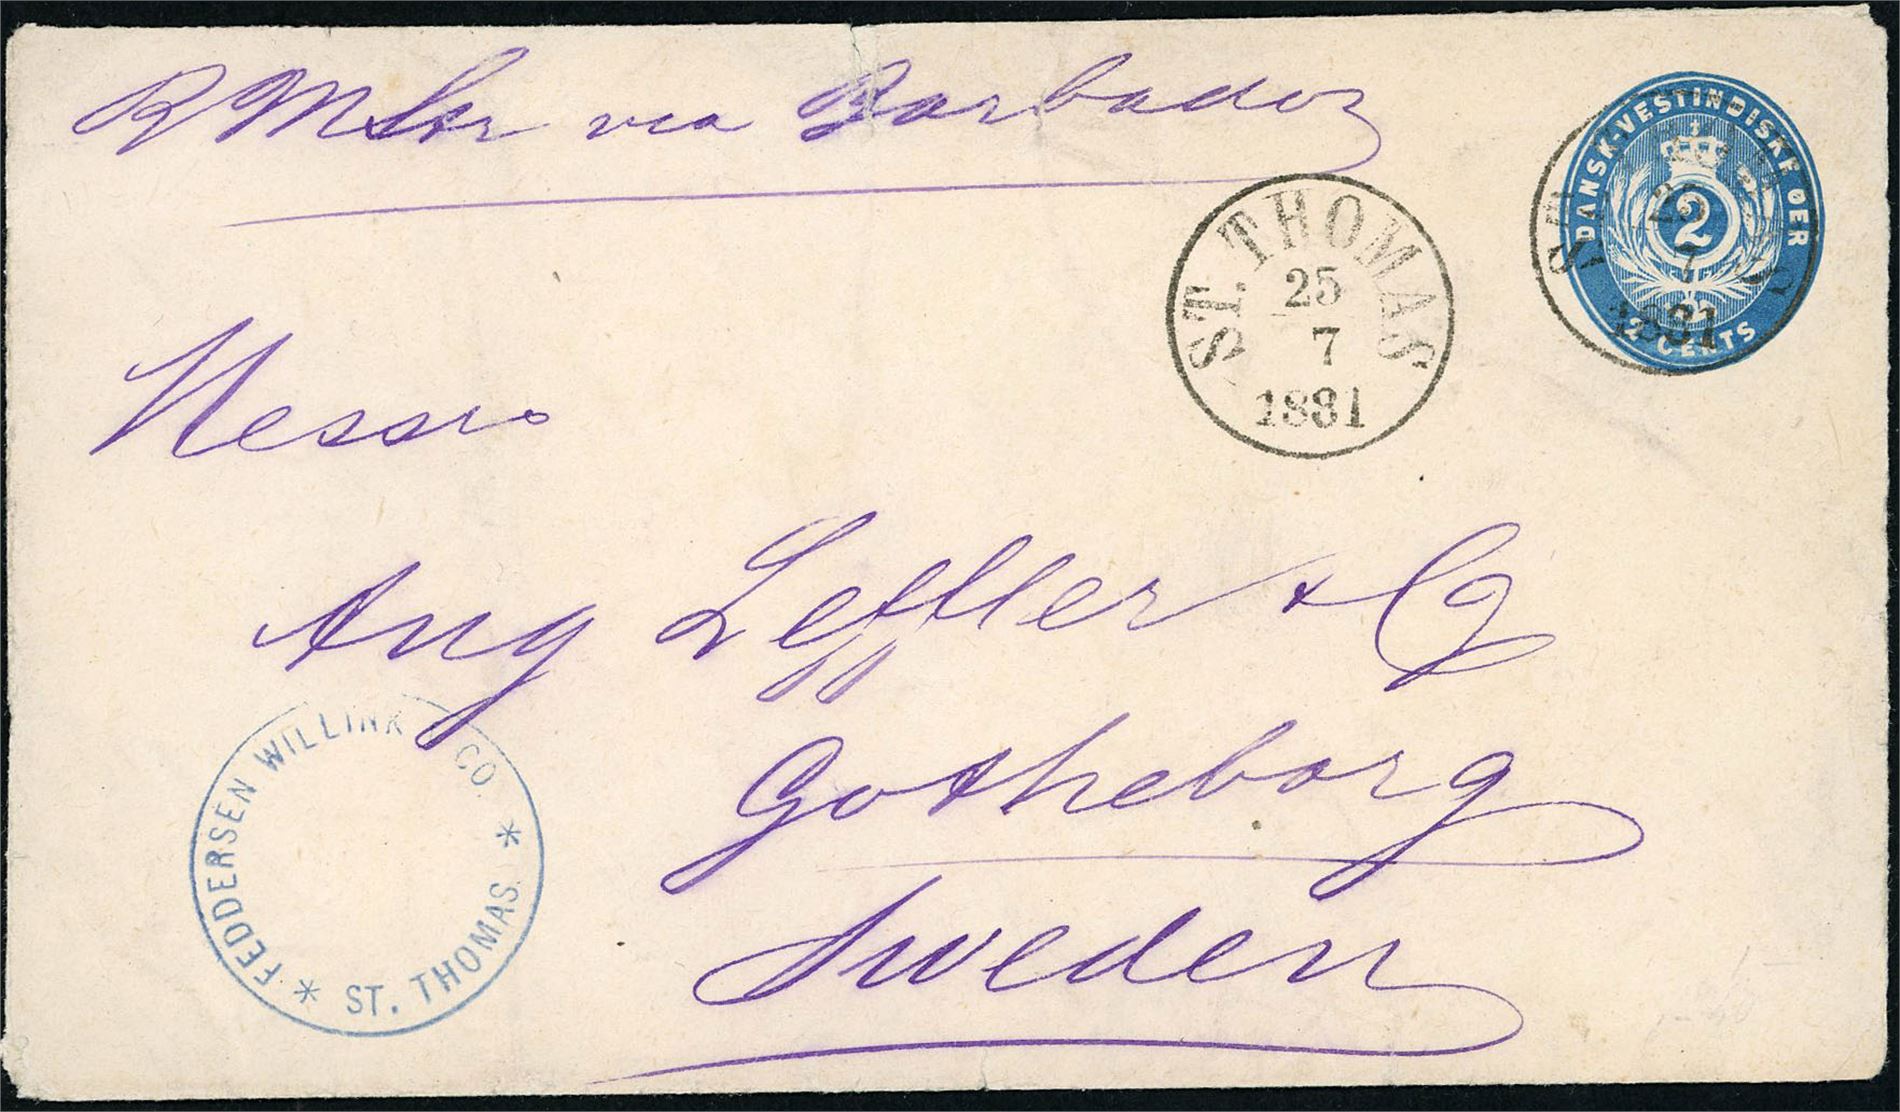 RMStr via Barbados
DANSK-VESTINDISKE ØER
2
2 CENTS
ST. THOMAS
25
7
1881
ST. THOMAS
25
7
1881
Messrs
Aug Leffler & Co
Gotheborg
Sweden
FEDDERSEN WILLINK & CO.
* ST. THOMAS. *